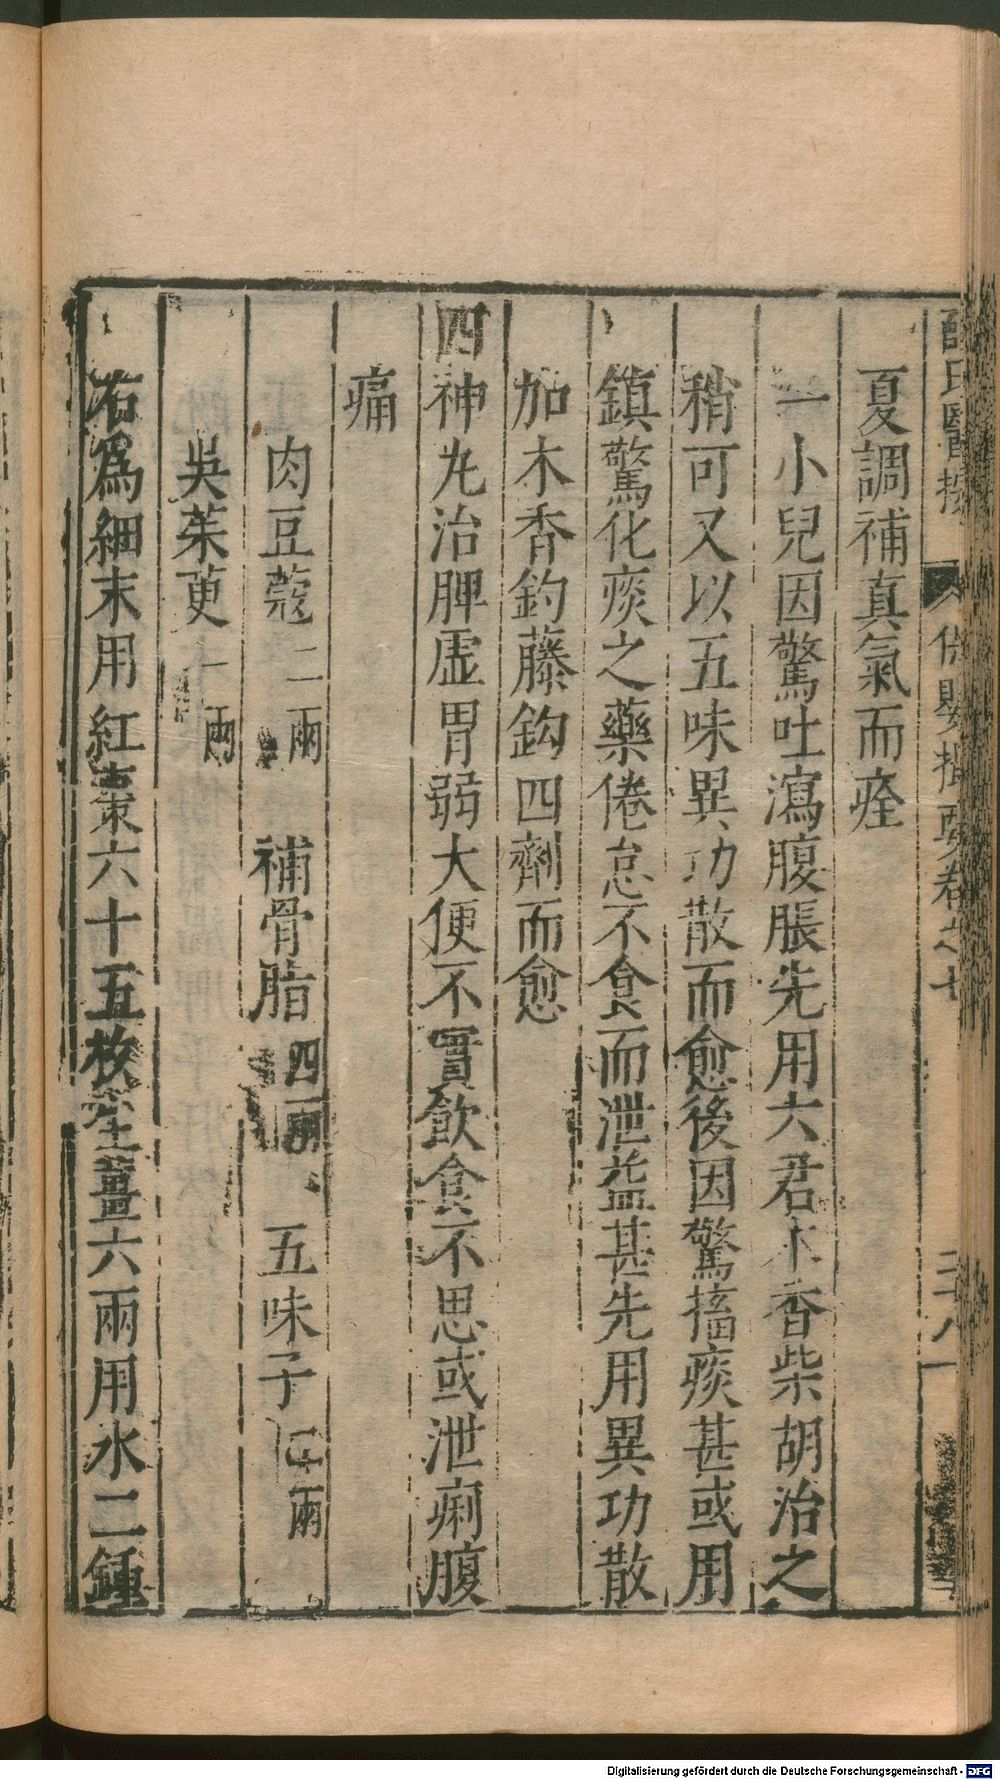 夏調補真氣而痊
一小兒因驚吐瀉腹脹先用六君木香柴胡治之
稍可又以五味異功散而愈後因驚搐痰甚或用
鎮驚化痰之藥倦怠不食而泄益甚先用異功散
加木香釣藤鈎四劑而愈
四神丸治脾虛胃弱大便不實飲食不思或泄痢腹
痛
肉豆蔻二兩 補骨脂四兩 五味子二兩
吳茱萸一兩
右為細末用紅棗六十五枚生薑六兩用水二鍾
Digitalisierung gefördert durch die Deutsche Forschungsgemeinschaft - DFG